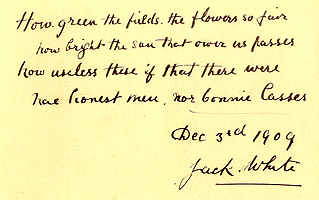 How green the fields. the flowers so fair
how bright the sun that over us passes
how useless these if that there were
nae honest men, nor bonnie lasses
Dec 3rd 1909
Jack. White